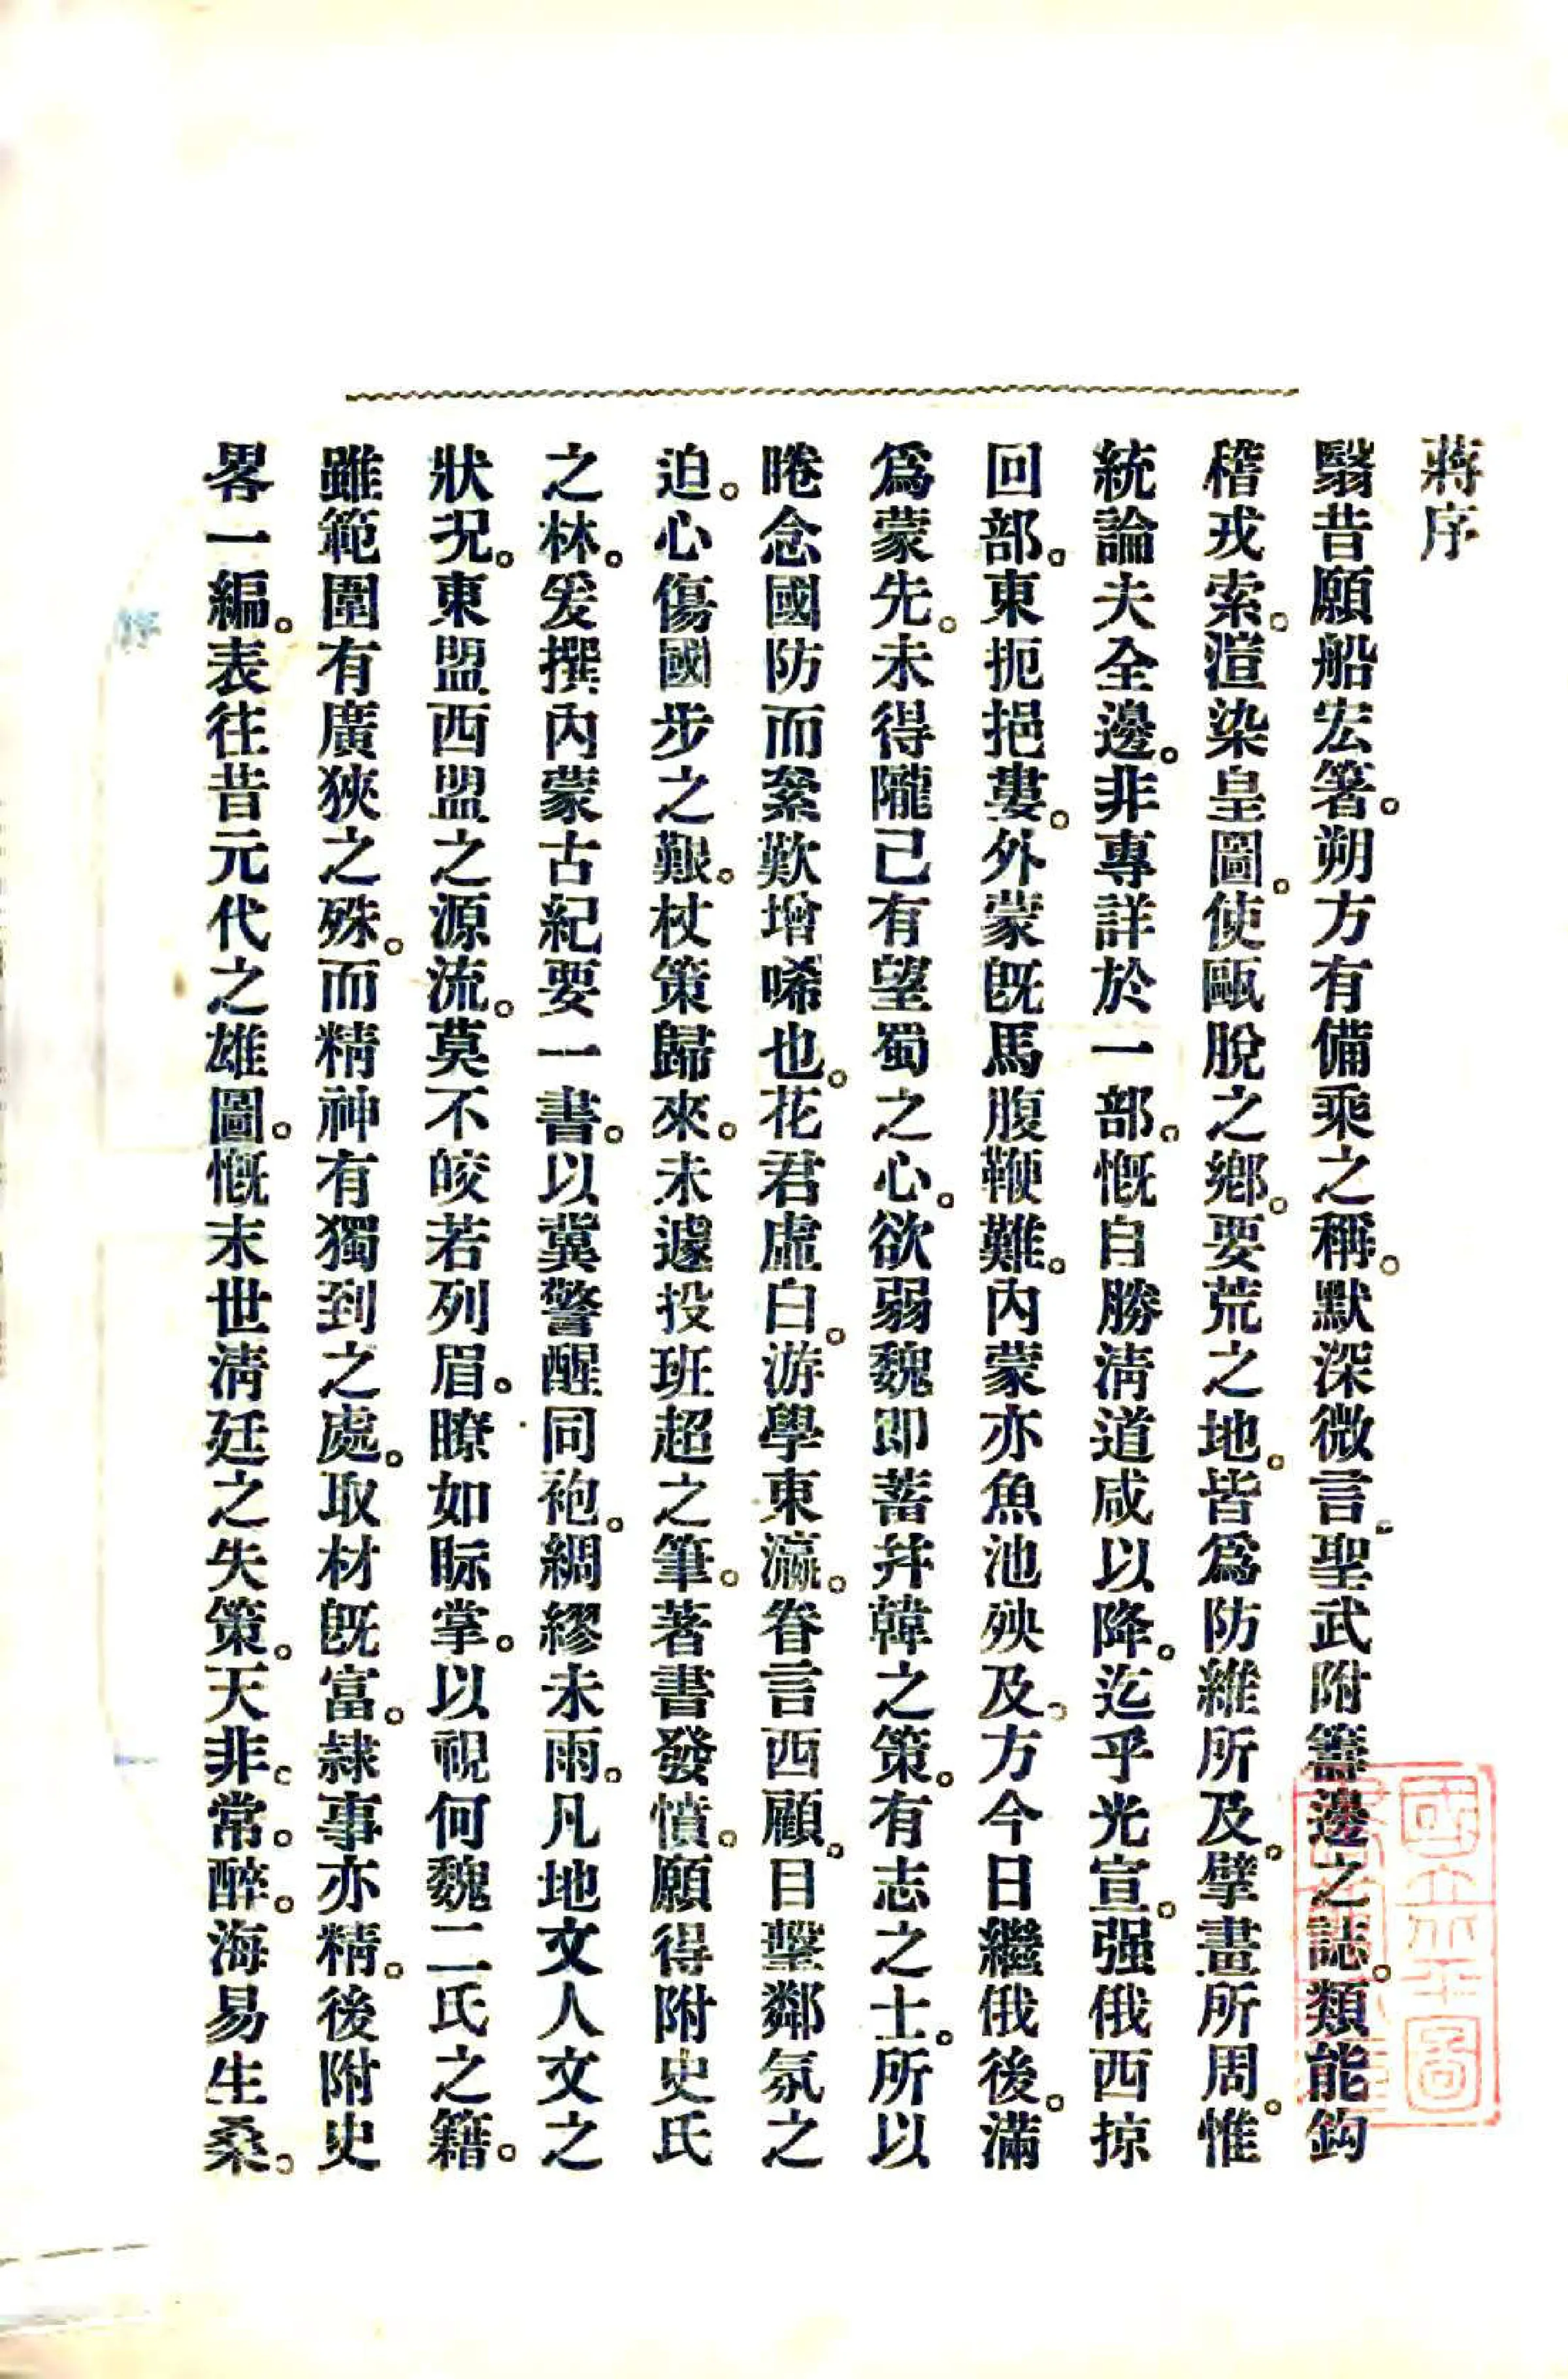 蔣序
翳昔願船宏箸。朔方有備乘之稱。默深微言。聖武附籌邊之誌。類能鈎
稽戎索。渲染皇圖。使甌脫之鄉。要荒之地。皆爲防維所及。擘畫所周。惟
統論夫全邊。非專詳於一部。慨自勝淸道咸以降。迄乎光宣。强俄西掠
回部。東扼挹婁。外蒙旣馬腹鞭難。內蒙亦魚池殃及。方今日繼俄後。滿
爲蒙先。未得隴已有望蜀之心。欲弱魏即蓄并韓之策。有志之士。所以
睠念國防而絫歎增唏也。花君虛白。游學東瀛。眷言西顧。目擊鄰氛之
迫。心傷國步之艱。杖策歸來。未遽投班超之筆。著書發憤。願得附史氏
之林。爰撰內蒙古紀要一書。以冀警醒同袍。綢繆未雨。凡地文人文之
狀况。東盟西盟之源流。莫不皎若列眉。瞭如眎掌。以視何魏二氏之籍。
雖範圍有廣狹之殊。而精神有獨到之處。取材旣富。隷事亦精。後附史
畧一編。表往昔元代之雄圖。慨末世淸廷之失策。天非。常。醉。海易生桑。
序
國立北平圖
書館